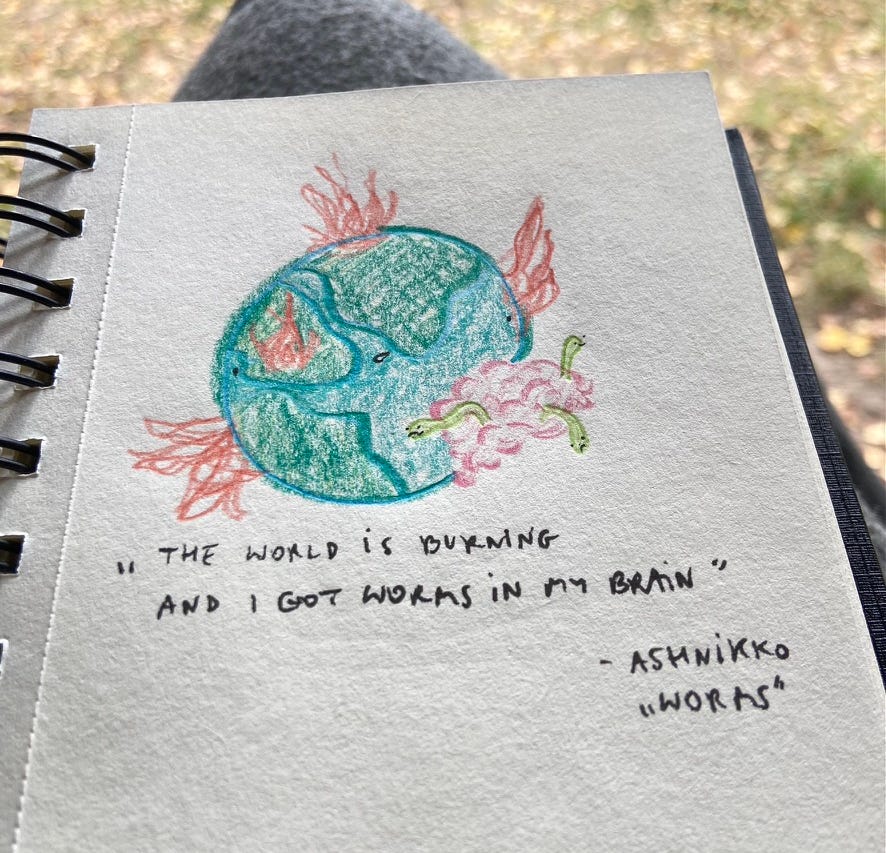 „ THE WORLD iS BURNING
AND I GOT WORMS iN MY BRAiN "
- ASHNiKKO
„WORMS"